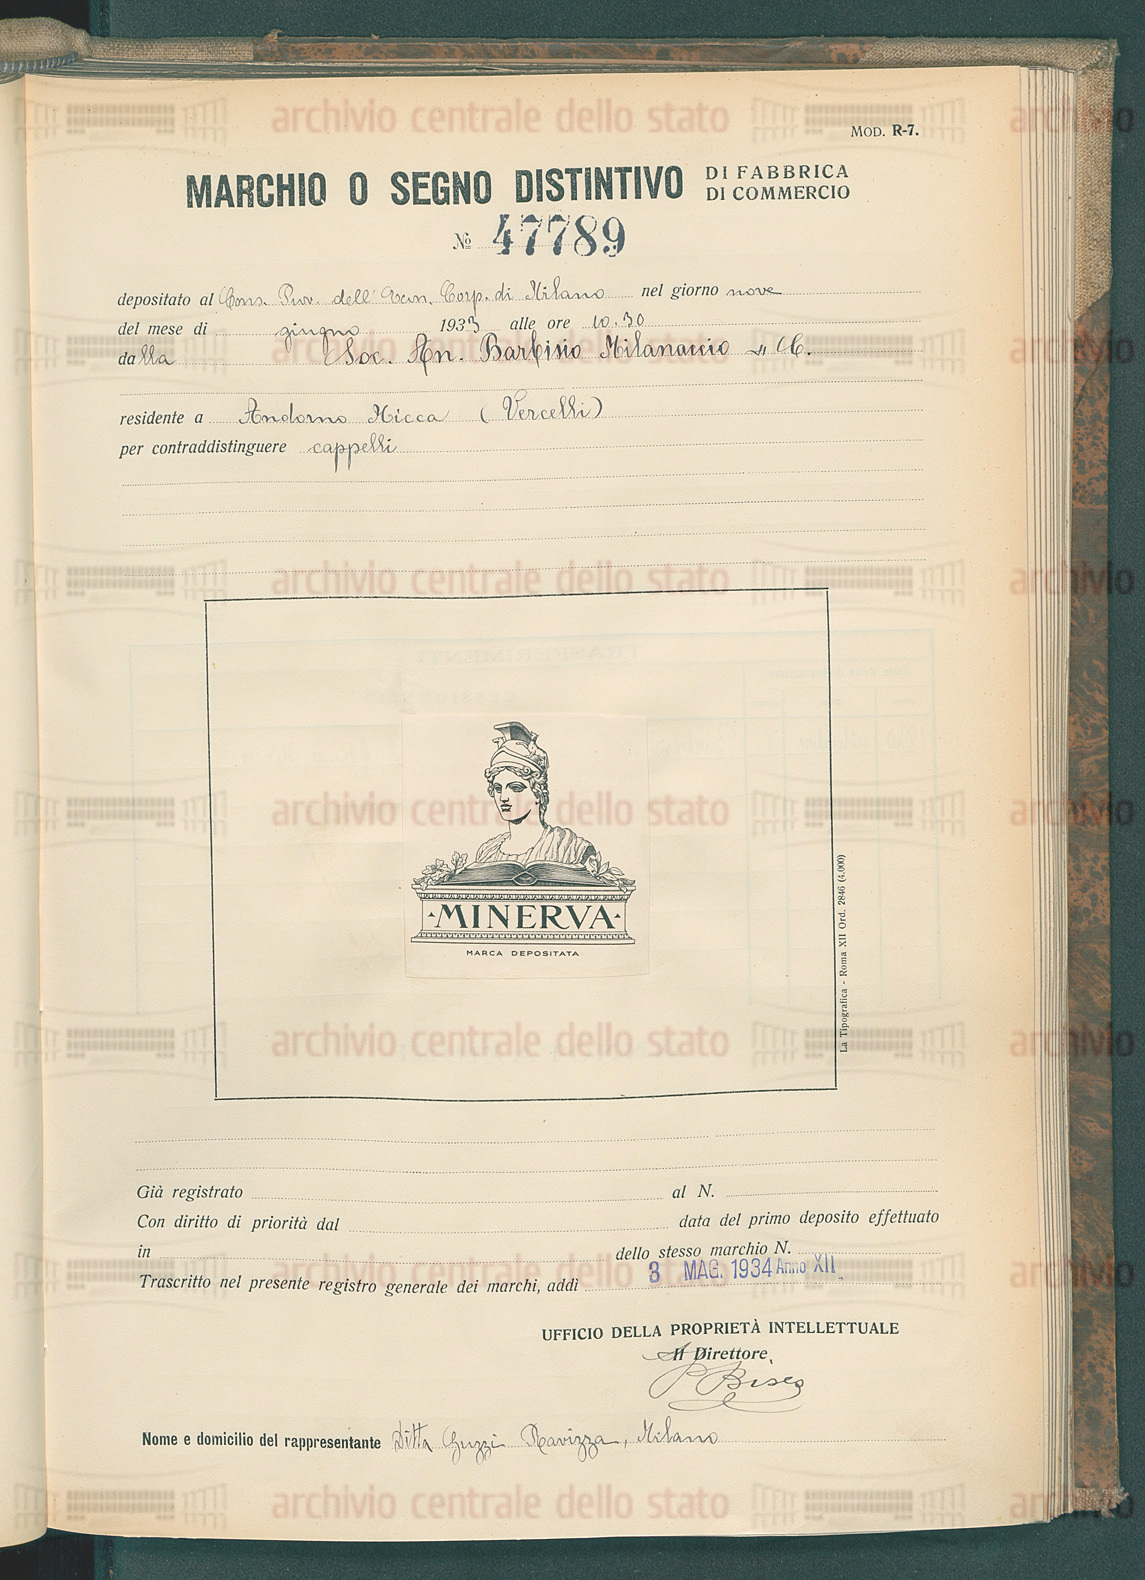 MOD. R-7.
MARCHIO O SEGNO DISTINTIVO DI FABBRICA DI COMMERCIO
No 47789
depositato al Cons. Prov. dell' Econ. Corp. di Milano nel giorno nove
del mese di giugno 1933 alle ore 10.30
dalla Soc. An. Barbisio Milanaccio & C.
residente a Andorno Micca (Vercelli)
per contraddistinguere cappelli
·MINERVA·
MARCA DEPOSITATA
La Tipografica - Roma XII Ord. 2846 (4.000)
Già registrato al N.
Con diritto di priorità dal data del primo deposito effettuato
in dello stesso marchio N.
Trascritto nel presente registro generale dei marchi, addì 3 MAG. 1934 Anno XII
UFFICIO DELLA PROPRIETÀ INTELLETTUALE
Il Direttore
Nome e domicilio del rappresentante Ditta Guzzi Ravizza, Milano
archivio centrale dello stato